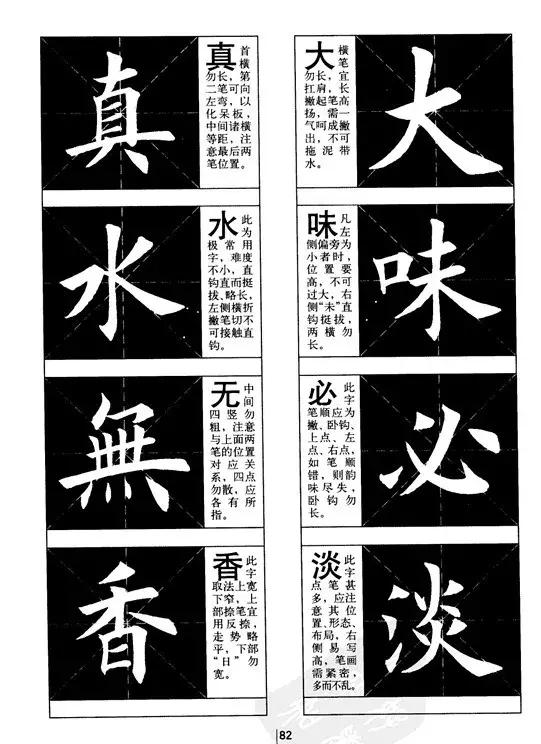 大
大 横
笔
勿长，宜
扛肩，长
撇起笔高
扬，需一
气呵成撇
出，不可
拖泥带
水。
味
味 凡
左
侧偏旁为
小者时，
位置要
高，不可
过大，右
侧“未”直
钩挺拔，
两横勿
长。
必
必 此
字
笔顺应为
撇、卧钩、
上点、左
点、右点，
如笔顺
错，则韵
味尽失，
卧钩勿
长。
淡
淡 此
字
点笔甚
多，应注
意其位
置、形态、
布局，右
侧易写
高，笔画
需紧密，
多而不乱。
真
真 首
横
勿长，第
二笔可向
左弯，以
化呆板，
中间诸横
等距，注
意最后两
笔位置。
水
水 此
为
极常用
字，难度
不小，直
钩直而挺
拔、略长，
左侧横折
撇笔切不
可接触直
钩。
無
无 中
间
四竖勿
粗，注意
与上面两
笔的位置
对应关
系，四点
勿散，应
各有所
指。
香
香 此
字
取法上宽
下窄，上
部捺笔宜
用反捺，
走势略
平，下部
“日”勿
宽。
82